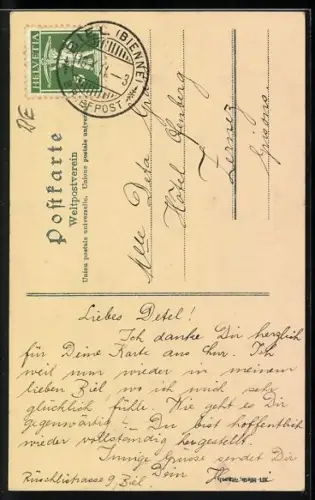 HELVETIA
BIEL (BIENNE)
BFPOST
Postkarte
Weltpostverein
Union postale universelle. Unione postale univer
Mlle Deta
Hôtel
Zernez
Grisons.
Liebes Detel!
Ich danke Dir herzlich
für Deine Karte aus Chur. Ich
weil nun wieder in meinem
lieben Biel, wo ich mich sehr
glücklich fühle. Wie geht es Dir
gegenwärtig? – Du bist hoffentlich
wieder vollständig hergestellt.
Innige Grüsse sendet Dir
Dein
Rüschlistrasse 9, Biel.